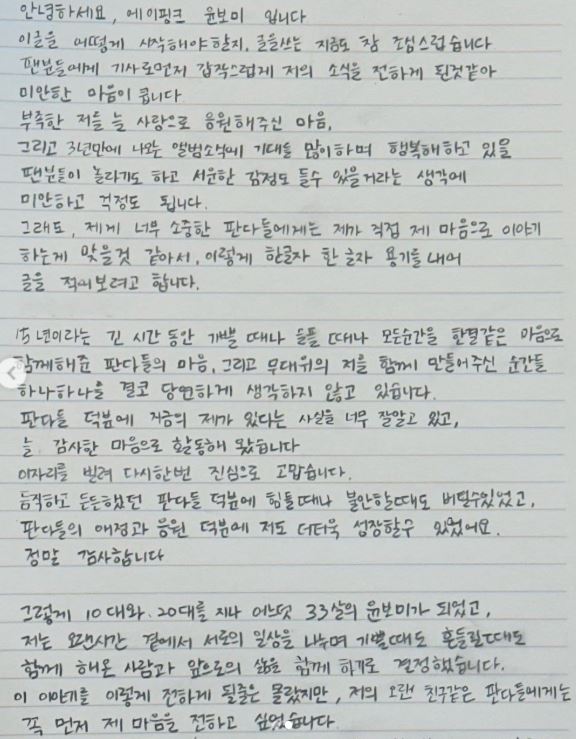 안녕하세요, 에이핑크 윤보미 입니다
이글을 어떻게 시작해야할지, 글을쓰는 지금도 참 조심스럽습니다
팬분들에게 기사로먼저 갑작스럽게 저의 소식을 전하게 된것같아
미안한 마음이 큽니다
부족한 저를 늘 사랑으로 응원해주신 마음,
그리고 3년만에 나오는 앨범소식에 기대를 많이하며 행복해하고 있을
팬분들이 놀라기도 하고 서운한 감정도 들수 있을거라는 생각에
미안하고 걱정도 됩니다.
그래도, 제게 너무 소중한 판다들에게는 제가 직접 제 마음으로 이야기
하는게 맞을것 같아서, 이렇게 한글자 한 글자 용기를 내어
글을 적어보려고 합니다.
15년이라는 긴 시간 동안 기쁠 때나 슬플 때나 모든순간을 한결같은 마음으로
함께해준 판다들의 마음, 그리고 무대위의 저를 함께 만들어주신 순간들
하나하나를 결코 당연하게 생각하지 않고 있습니다.
판다들 덕분에 지금의 제가 있다는 사실을 너무 잘알고 있고,
늘 감사한 마음으로 활동해 왔습니다
이자리를 빌려 다시한번 진심으로 고맙습니다.
듬직하고 든든했던 판다들 덕분에 힘들때나 불안할때도 버틸수있었고,
판다들의 애정과 응원 덕분에 저도 더더욱 성장할수 있었어요.
정말 감사합니다
그렇게 10대와, 20대를 지나 어느덧 33살의 윤보미가 되었고,
저는 오랜시간 곁에서 서로의 일상을 나누며 기쁠때도 흔들릴때도
함께 해온 사람과 앞으로의 삶을 함께 하기로 결정했습니다.
이 이야기를 이렇게 전하게 될줄은 몰랐지만, 저의 오랜 친구같은 판다들에게는
꼭 먼저 제 마음을 전하고 싶었습니다.